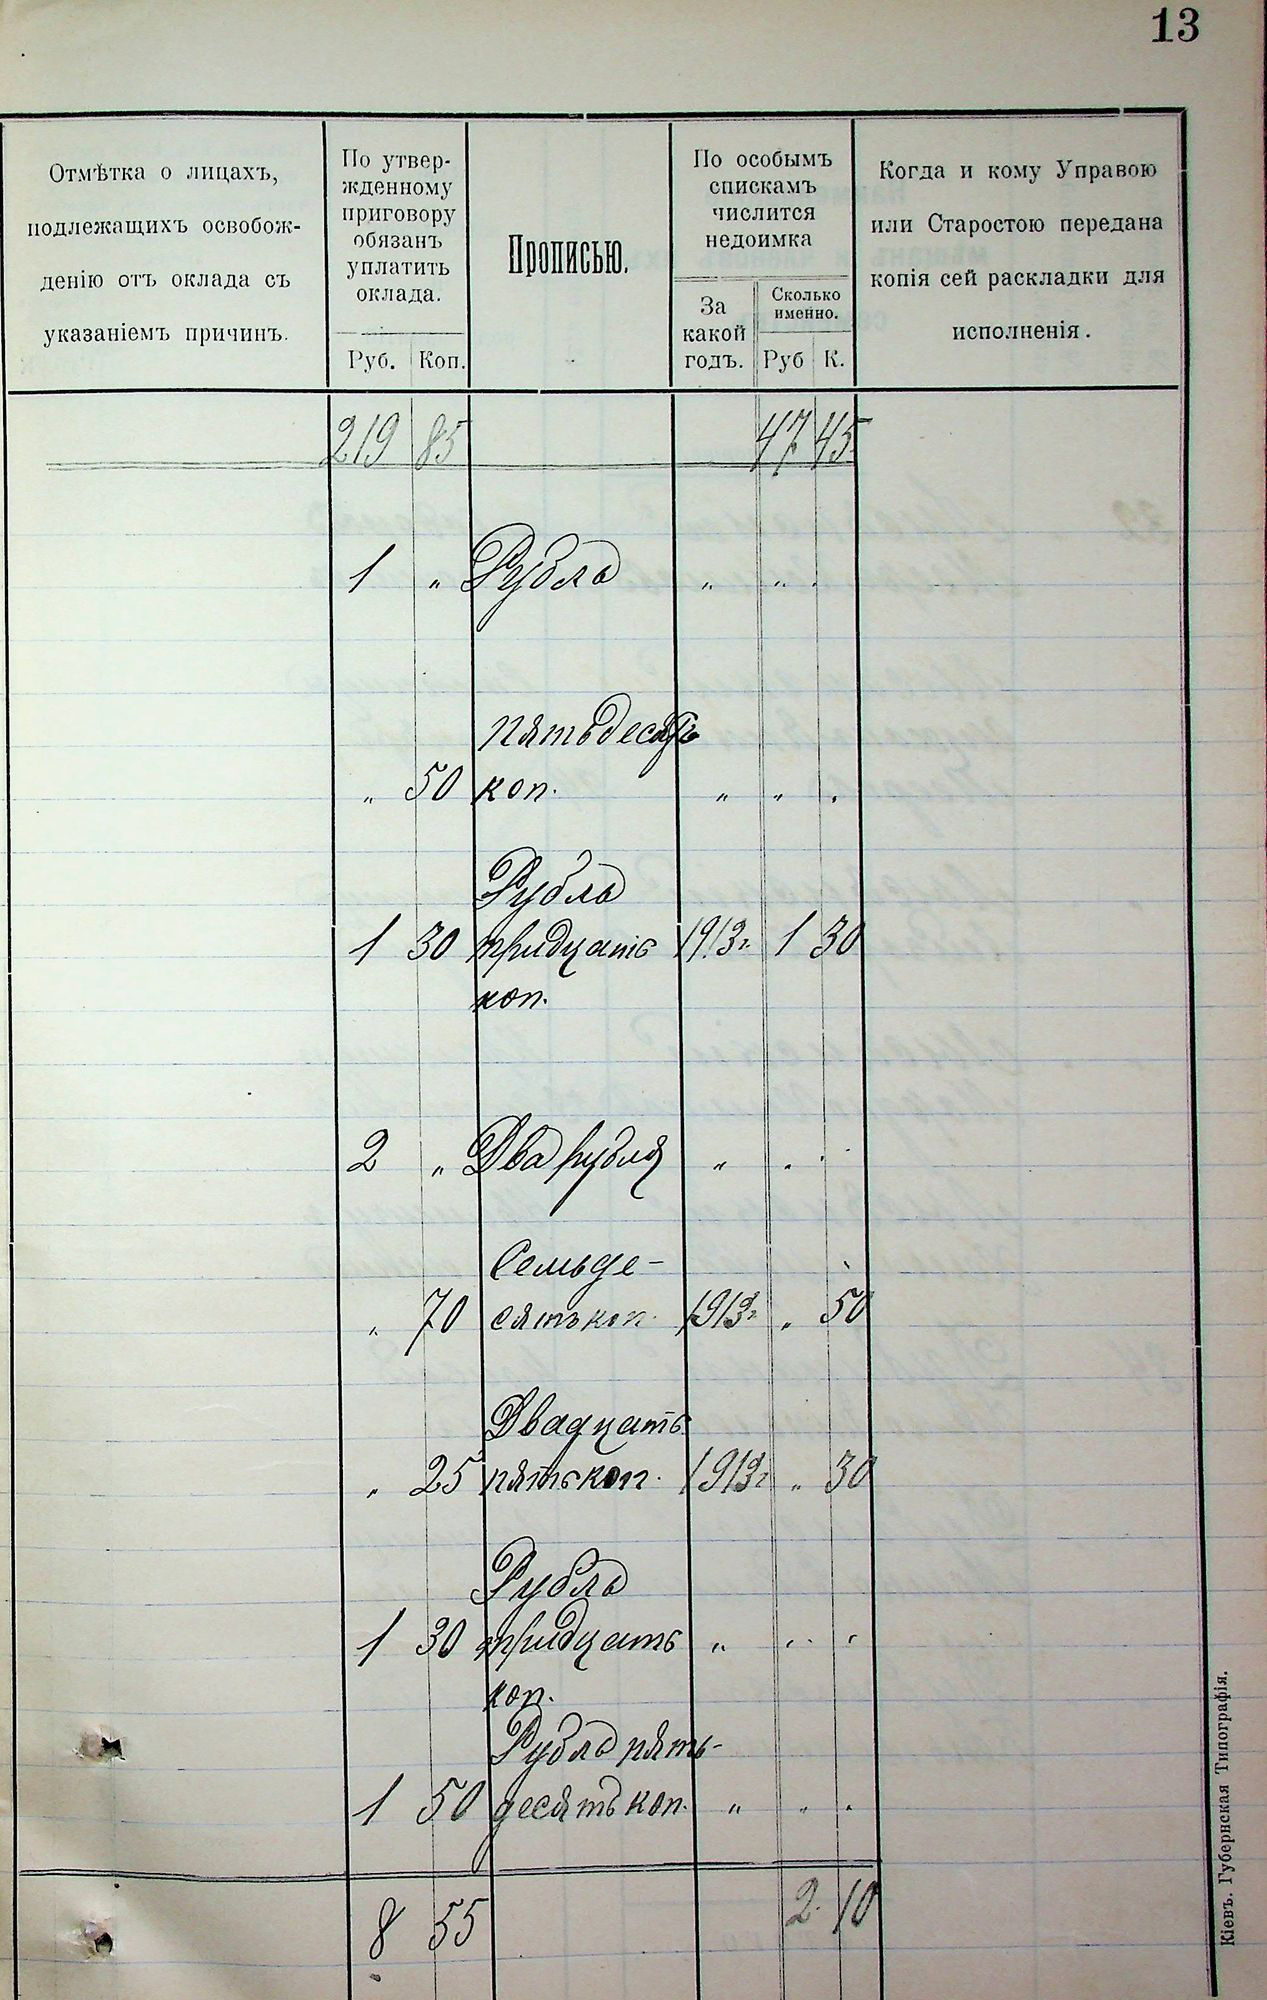 13
Отмѣтка о лицахъ,
подлежащихъ освобож-
денію отъ оклада съ
указаніемъ причинъ.
По утвер-
жденному
приговору
обязанъ
уплатить
оклада.
Руб. Коп.
Прописью.
По особымъ
спискамъ
числится
недоимка
За
какой
годъ.
Сколько
именно.
Руб К.
Когда и кому Управою
или Старостою передана
копія сей раскладки для
исполненія.
219 85 47 45
1 " Рубль " " .
пятьдесятъ
" 50 коп. " " .
Рубль
1 30 тридцать 1913г 1 30
коп.
2 " Два рубля " . .
Семьде-
" 70 сятъ коп. 1913г " 50
Двадцать
" 25 пять коп. 1913г " 30
Рубль
1 30 тридцать " . .
коп.
Рубль пять-
1 50 десятъ коп. " . .
8 55 2. 10
Кіевъ. Губернская Типографія.